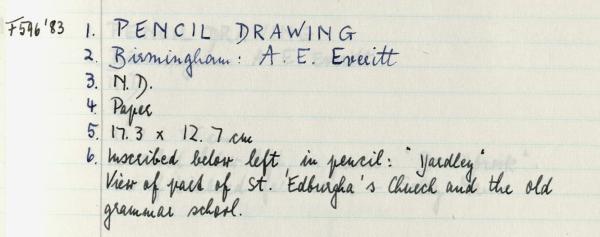 F596'83 1. PENCIL DRAWING
2. Birmingham: A. E. Everitt
3. N.D.
4. Paper
5. 17.3 x 12.7 cm
6. Inscribed below left in pencil: "Yardley"
View of part of St. Edburgha's Church and the old
grammar school.